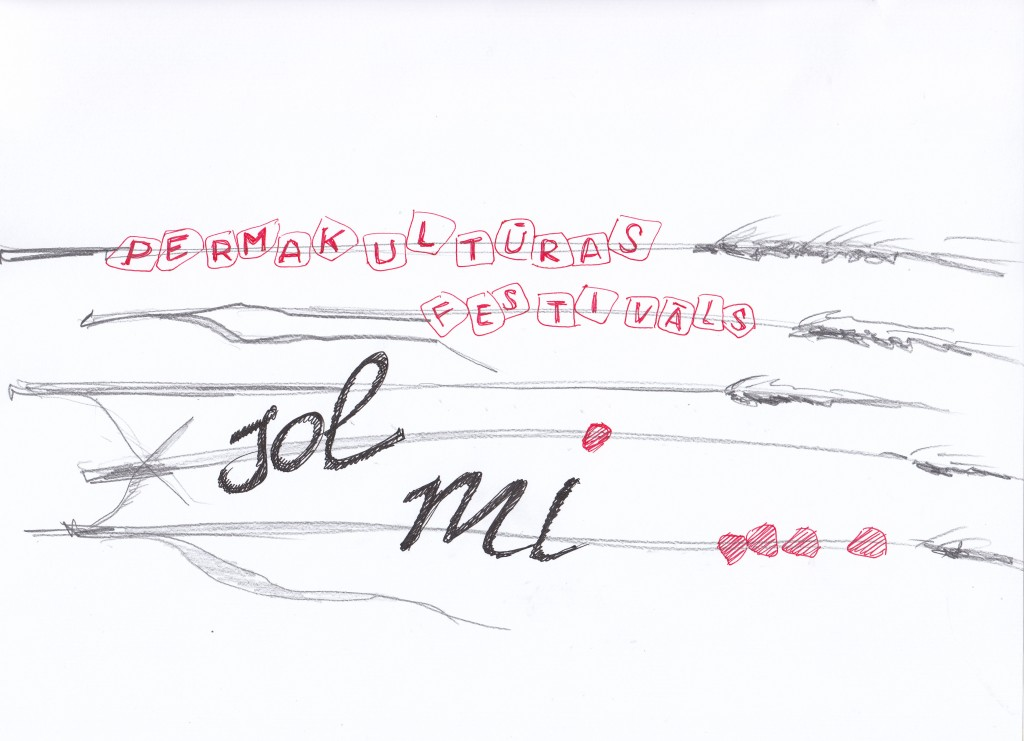 PERMAKULTŪRAS
FESTIVĀLS
sol
mi